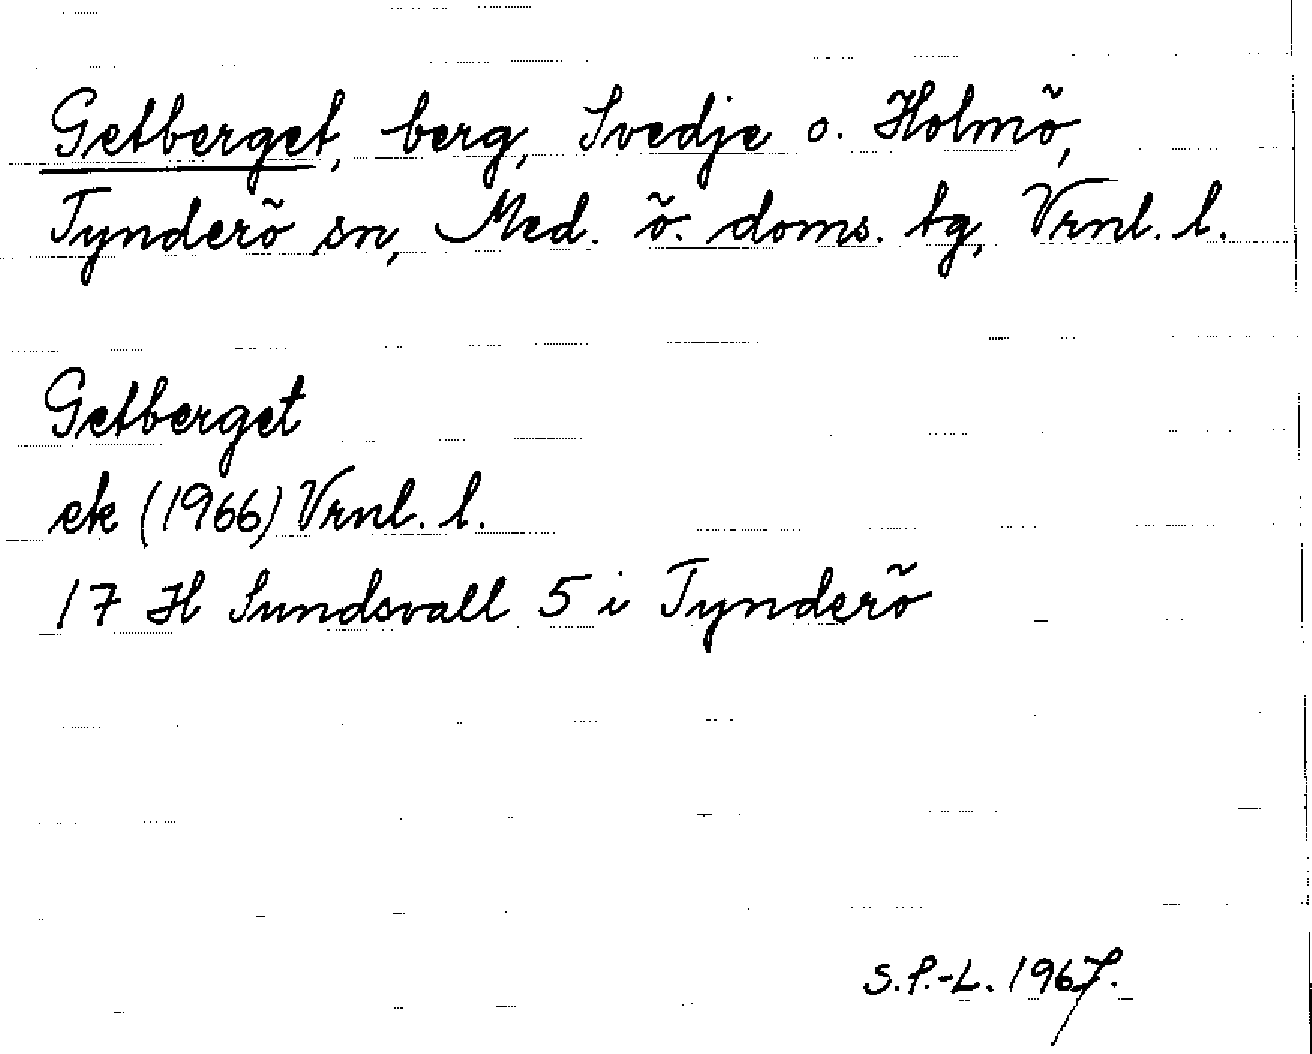 Getberget, berg, Svedje o. Holmö,
Tynderö sn, Med. ö. doms. tg, Vrnl. l.
Getberget
ek (1966) Vrnl. l.
17 H Sundsvall 5 i Tynderö
S.P.-L. 1967.